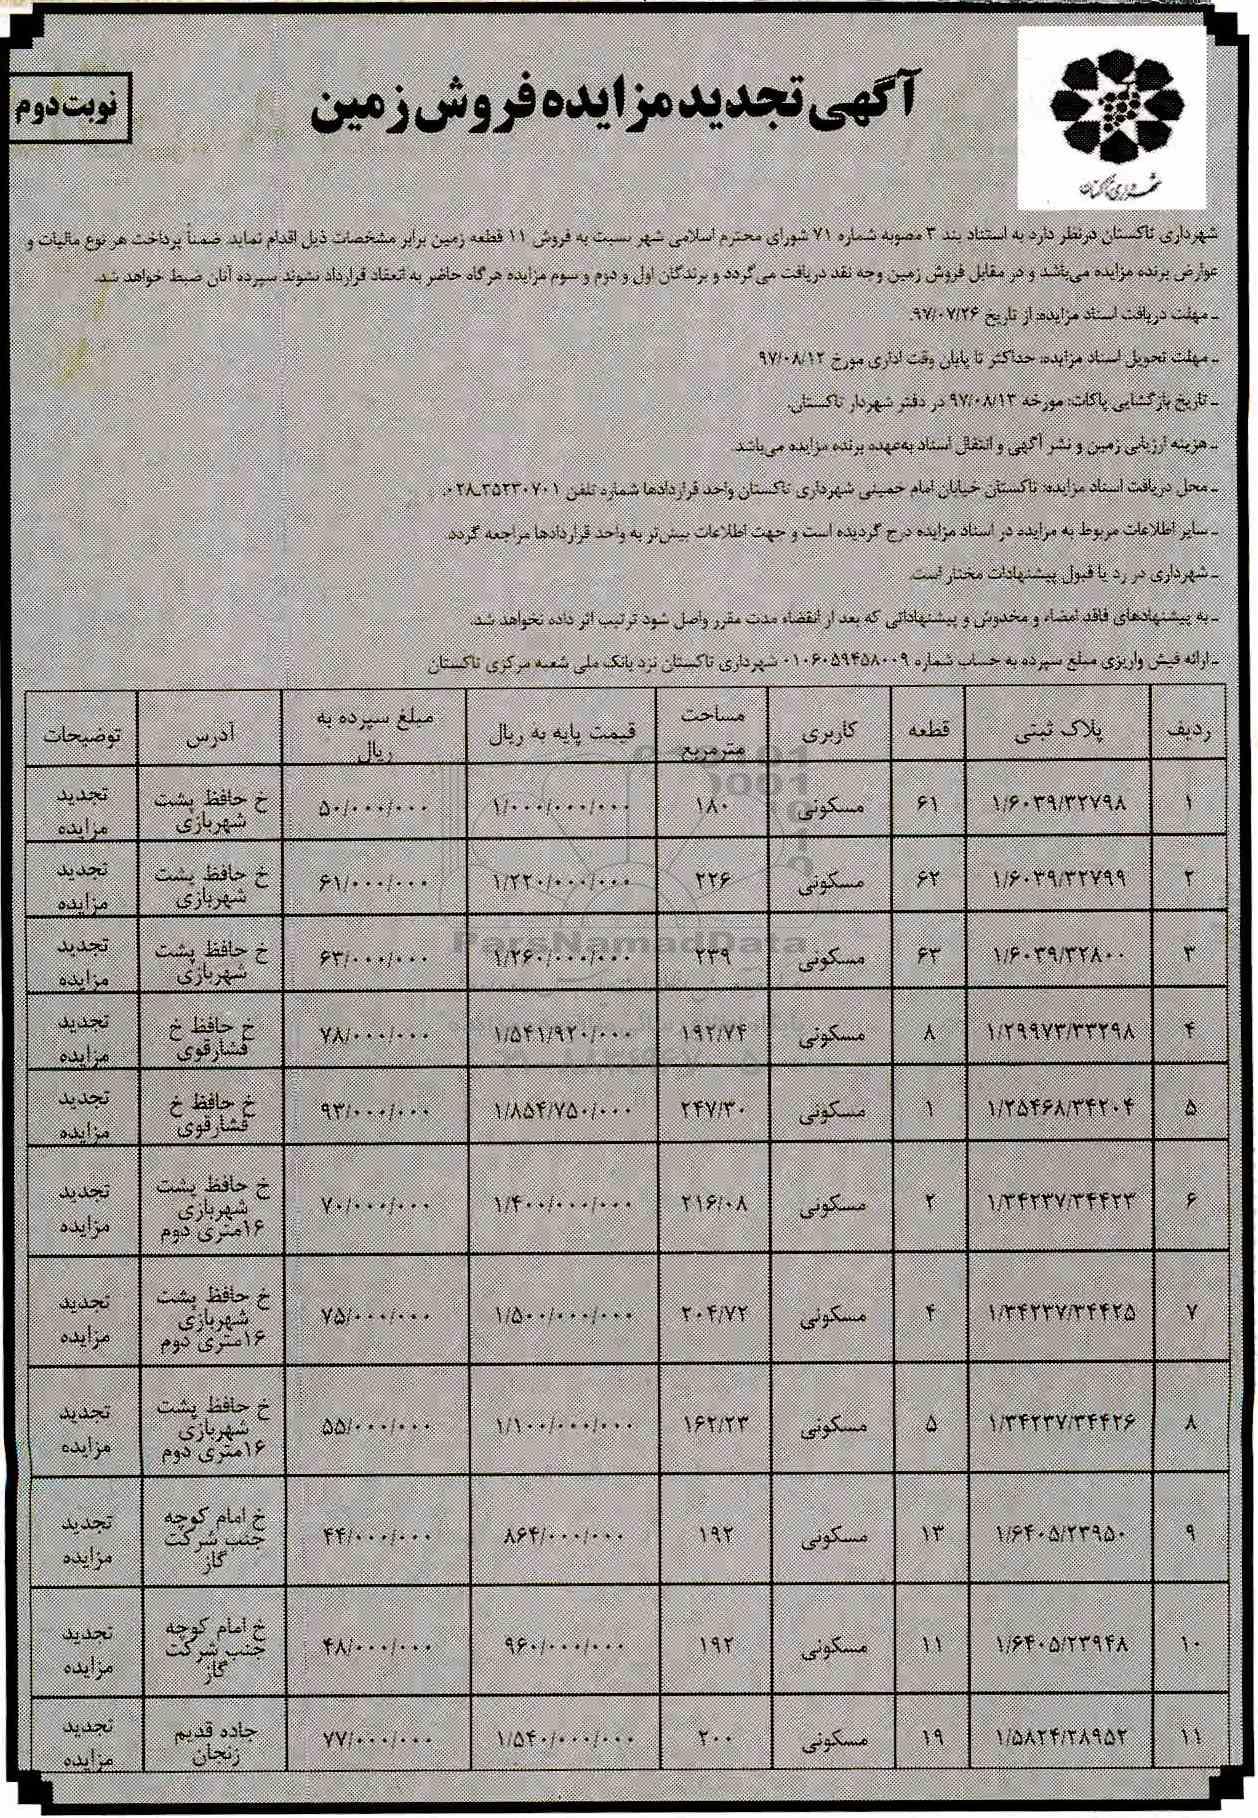 آگهی تجدید مزایده فروش زمین
نوبت دوم
شهرداری تاکستان
شهرداری تاکستان درنظر دارد به استناد بند ۳ مصوبه شماره ۷۱ شورای محترم اسلامی شهر نسبت به فروش ۱۱ قطعه زمین برابر مشخصات ذیل اقدام نماید. ضمناً پرداخت هر نوع مالیات و
عوارض برنده مزایده می‌باشد و در مقابل فروش زمین وجه نقد دریافت می‌گردد و برندگان اول و دوم و سوم مزایده هرگاه حاضر به انعقاد قرارداد نشوند سپرده آنان ضبط خواهد شد.
ـ مهلت دریافت اسناد مزایده: از تاریخ ۹۷/۰۷/۲۶.
ـ مهلت تحویل اسناد مزایده: حداکثر تا پایان وقت اداری مورخ ۹۷/۰۸/۱۲
ـ تاریخ بازگشایی پاکات: مورخه ۹۷/۰۸/۱۳ در دفتر شهردار تاکستان.
ـ هزینه ارزیابی زمین و نشر آگهی و انتقال اسناد به‌عهده برنده مزایده می‌باشد.
ـ محل دریافت اسناد مزایده: تاکستان خیابان امام خمینی شهرداری تاکستان واحد قراردادها شماره تلفن ۳۵۲۳۰۷۰۱ـ۰۲۸.
ـ سایر اطلاعات مربوط به مزایده در اسناد مزایده درج گردیده است و جهت اطلاعات بیش‌تر به واحد قراردادها مراجعه گردد.
ـ شهرداری در رد یا قبول پیشنهادات مختار است.
ـ به پیشنهادهای فاقد امضاء و مخدوش و پیشنهاداتی که بعد از انقضاء مدت مقرر واصل شود ترتیب اثر داده نخواهد شد.
ـ ارائه فیش واریزی مبلغ سپرده به حساب شماره ۰۱۰۶۰۵۹۴۵۸۰۰۹ شهرداری تاکستان نزد بانک ملی شعبه مرکزی تاکستان
ردیف پلاک ثبتی قطعه کاربری مساحت مترمربع قیمت پایه به ریال مبلغ سپرده به ریال آدرس توضیحات
۱ ۱/۶۰۳۹/۳۲۷۹۸ ۶۱ مسکونی ۱۸۰ ۱/۰۰۰/۰۰۰/۰۰۰ ۵۰/۰۰۰/۰۰۰ خ حافظ پشت شهربازی تجدید مزایده
۲ ۱/۶۰۳۹/۳۲۷۹۹ ۶۲ مسکونی ۲۲۶ ۱/۲۲۰/۰۰۰/۰۰۰ ۶۱/۰۰۰/۰۰۰ خ حافظ پشت شهربازی تجدید مزایده
۳ ۱/۶۰۳۹/۳۲۸۰۰ ۶۳ مسکونی ۲۳۹ ۱/۲۶۰/۰۰۰/۰۰۰ ۶۳/۰۰۰/۰۰۰ خ حافظ پشت شهربازی تجدید مزایده
۴ ۱/۲۹۹۷۳/۳۳۲۹۸ ۸ مسکونی ۱۹۲/۷۴ ۱/۵۴۱/۹۲۰/۰۰۰ ۷۸/۰۰۰/۰۰۰ خ حافظ خ فشارقوی تجدید مزایده
۵ ۱/۲۵۴۶۸/۳۴۲۰۴ ۱ مسکونی ۲۴۷/۳۰ ۱/۸۵۴/۷۵۰/۰۰۰ ۹۳/۰۰۰/۰۰۰ خ حافظ خ فشارقوی تجدید مزایده
۶ ۱/۳۴۲۳۷/۳۴۴۲۳ ۲ مسکونی ۲۱۶/۰۸ ۱/۴۰۰/۰۰۰/۰۰۰ ۷۰/۰۰۰/۰۰۰ خ حافظ پشت شهربازی ۱۶متری دوم تجدید مزایده
۷ ۱/۳۴۲۳۷/۳۴۴۲۵ ۴ مسکونی ۲۰۴/۷۲ ۱/۵۰۰/۰۰۰/۰۰۰ ۷۵/۰۰۰/۰۰۰ خ حافظ پشت شهربازی ۱۶متری دوم تجدید مزایده
۸ ۱/۳۴۲۳۷/۳۴۴۲۶ ۵ مسکونی ۱۶۲/۲۳ ۱/۱۰۰/۰۰۰/۰۰۰ ۵۵/۰۰۰/۰۰۰ خ حافظ پشت شهربازی ۱۶متری دوم تجدید مزایده
۹ ۱/۶۴۰۵/۲۳۹۵۰ ۱۳ مسکونی ۱۹۲ ۸۶۴/۰۰۰/۰۰۰ ۴۴/۰۰۰/۰۰۰ خ امام کوچه جنب شرکت گاز تجدید مزایده
۱۰ ۱/۶۴۰۵/۲۳۹۴۸ ۱۱ مسکونی ۱۹۲ ۹۶۰/۰۰۰/۰۰۰ ۴۸/۰۰۰/۰۰۰ خ امام کوچه جنب شرکت گاز تجدید مزایده
۱۱ ۱/۵۸۲۴/۲۸۹۵۲ ۱۹ مسکونی ۲۰۰ ۱/۵۴۰/۰۰۰/۰۰۰ ۷۷/۰۰۰/۰۰۰ جاده قدیم زنجان تجدید مزایده
ParsNamadData